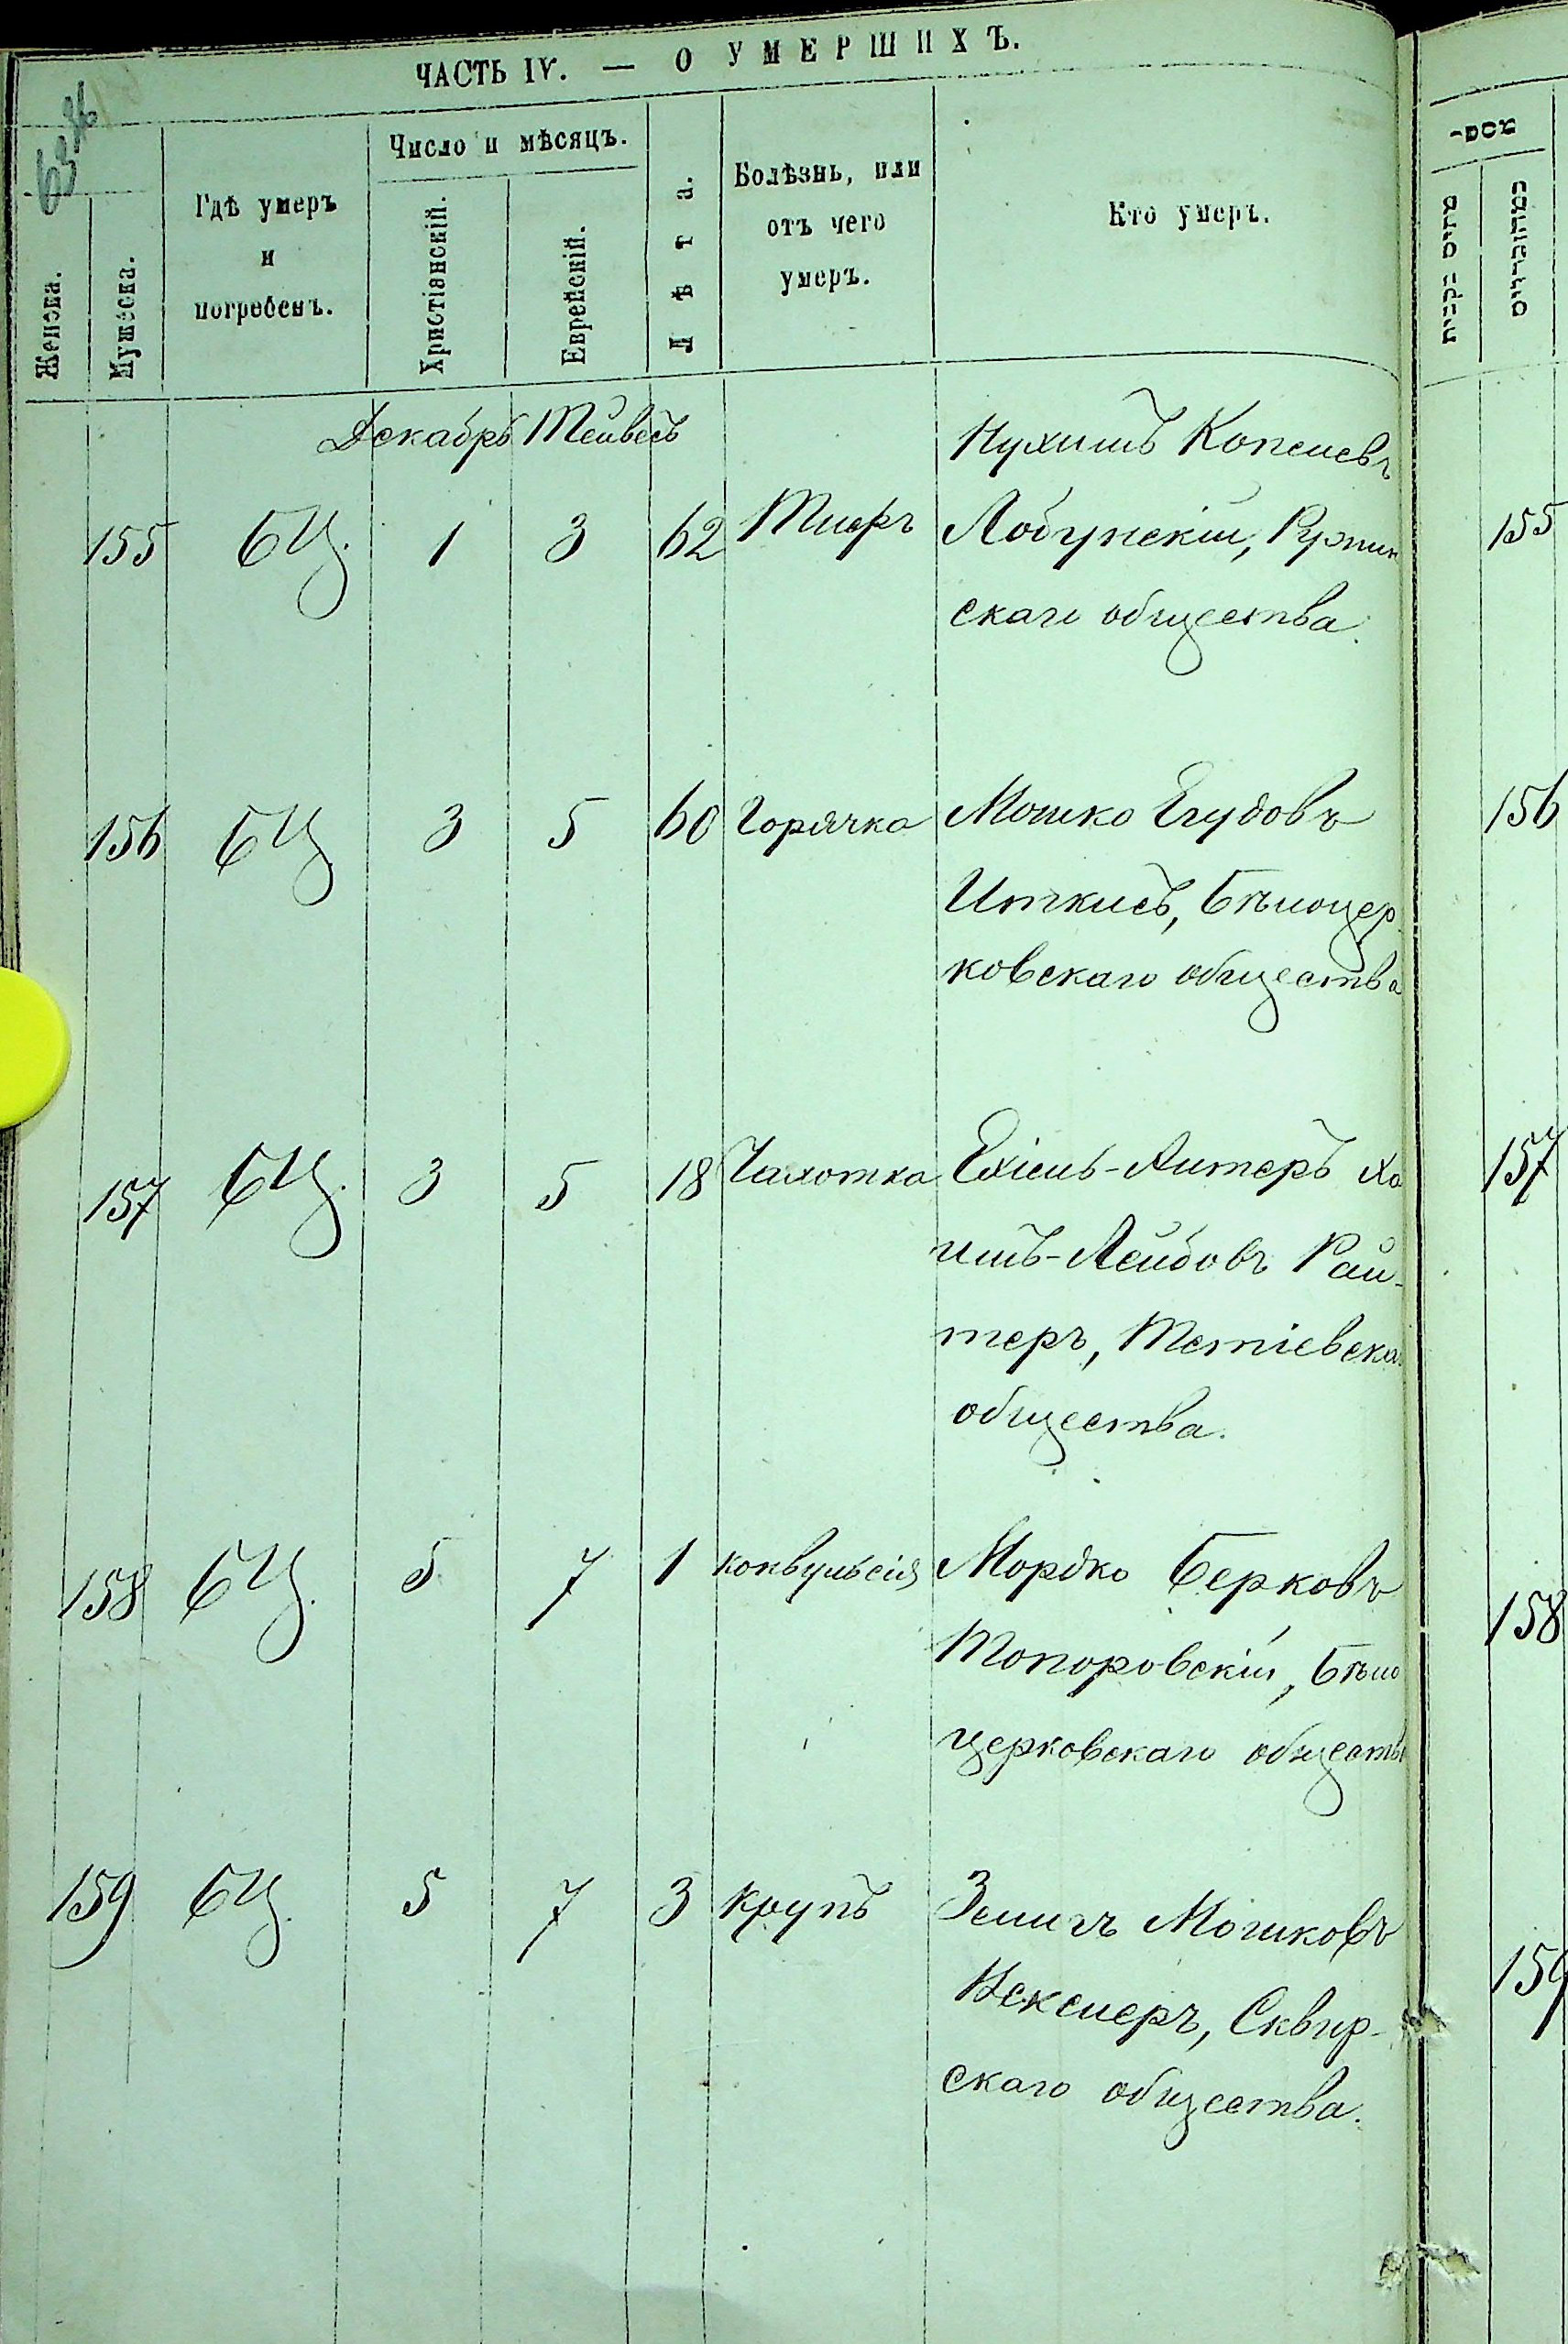 ЧАСТЬ IV. — О УМЕРШИХЪ.
Женска.
Мужеска.
Гдѣ умеръ
и
погребенъ.
Число и мѣсяцъ.
Христіанскій.
Еврейскій.
Лѣта.
Болѣзнь, или
отъ чего
умеръ.
Кто умеръ.
Декабрь Тейвесъ
155 БЦ. 1 3 62 Тифъ
Нухимъ Копелевъ
Лобунскій, Ружин
скаго общества.
156 БЦ 3 5 60 Горячка
Мошко Егудовъ
Иткисъ, Бѣлоцер
ковскаго общества
157 БЦ. 3 5 18 Чахотка
Ехіель-Алтеръ Ха
имъ-Лейбовъ Рай-
теръ, Тетіевска
общества.
158 БЦ. 5 7 1 конвульсія
Мордко Берковъ
Топоровскій, Бѣло
церковскаго обществ
159 БЦ. 5 7 3 крупъ
Зелигъ Мошковъ
Некслеръ, Сквир-
скаго общества.
מתים נקבות
155
156
157
158
159